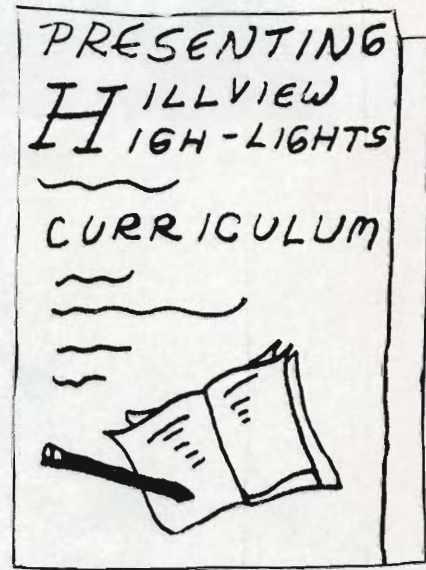 PRESENTING
HILLVIEW
HIGH-LIGHTS
CURRICULUM